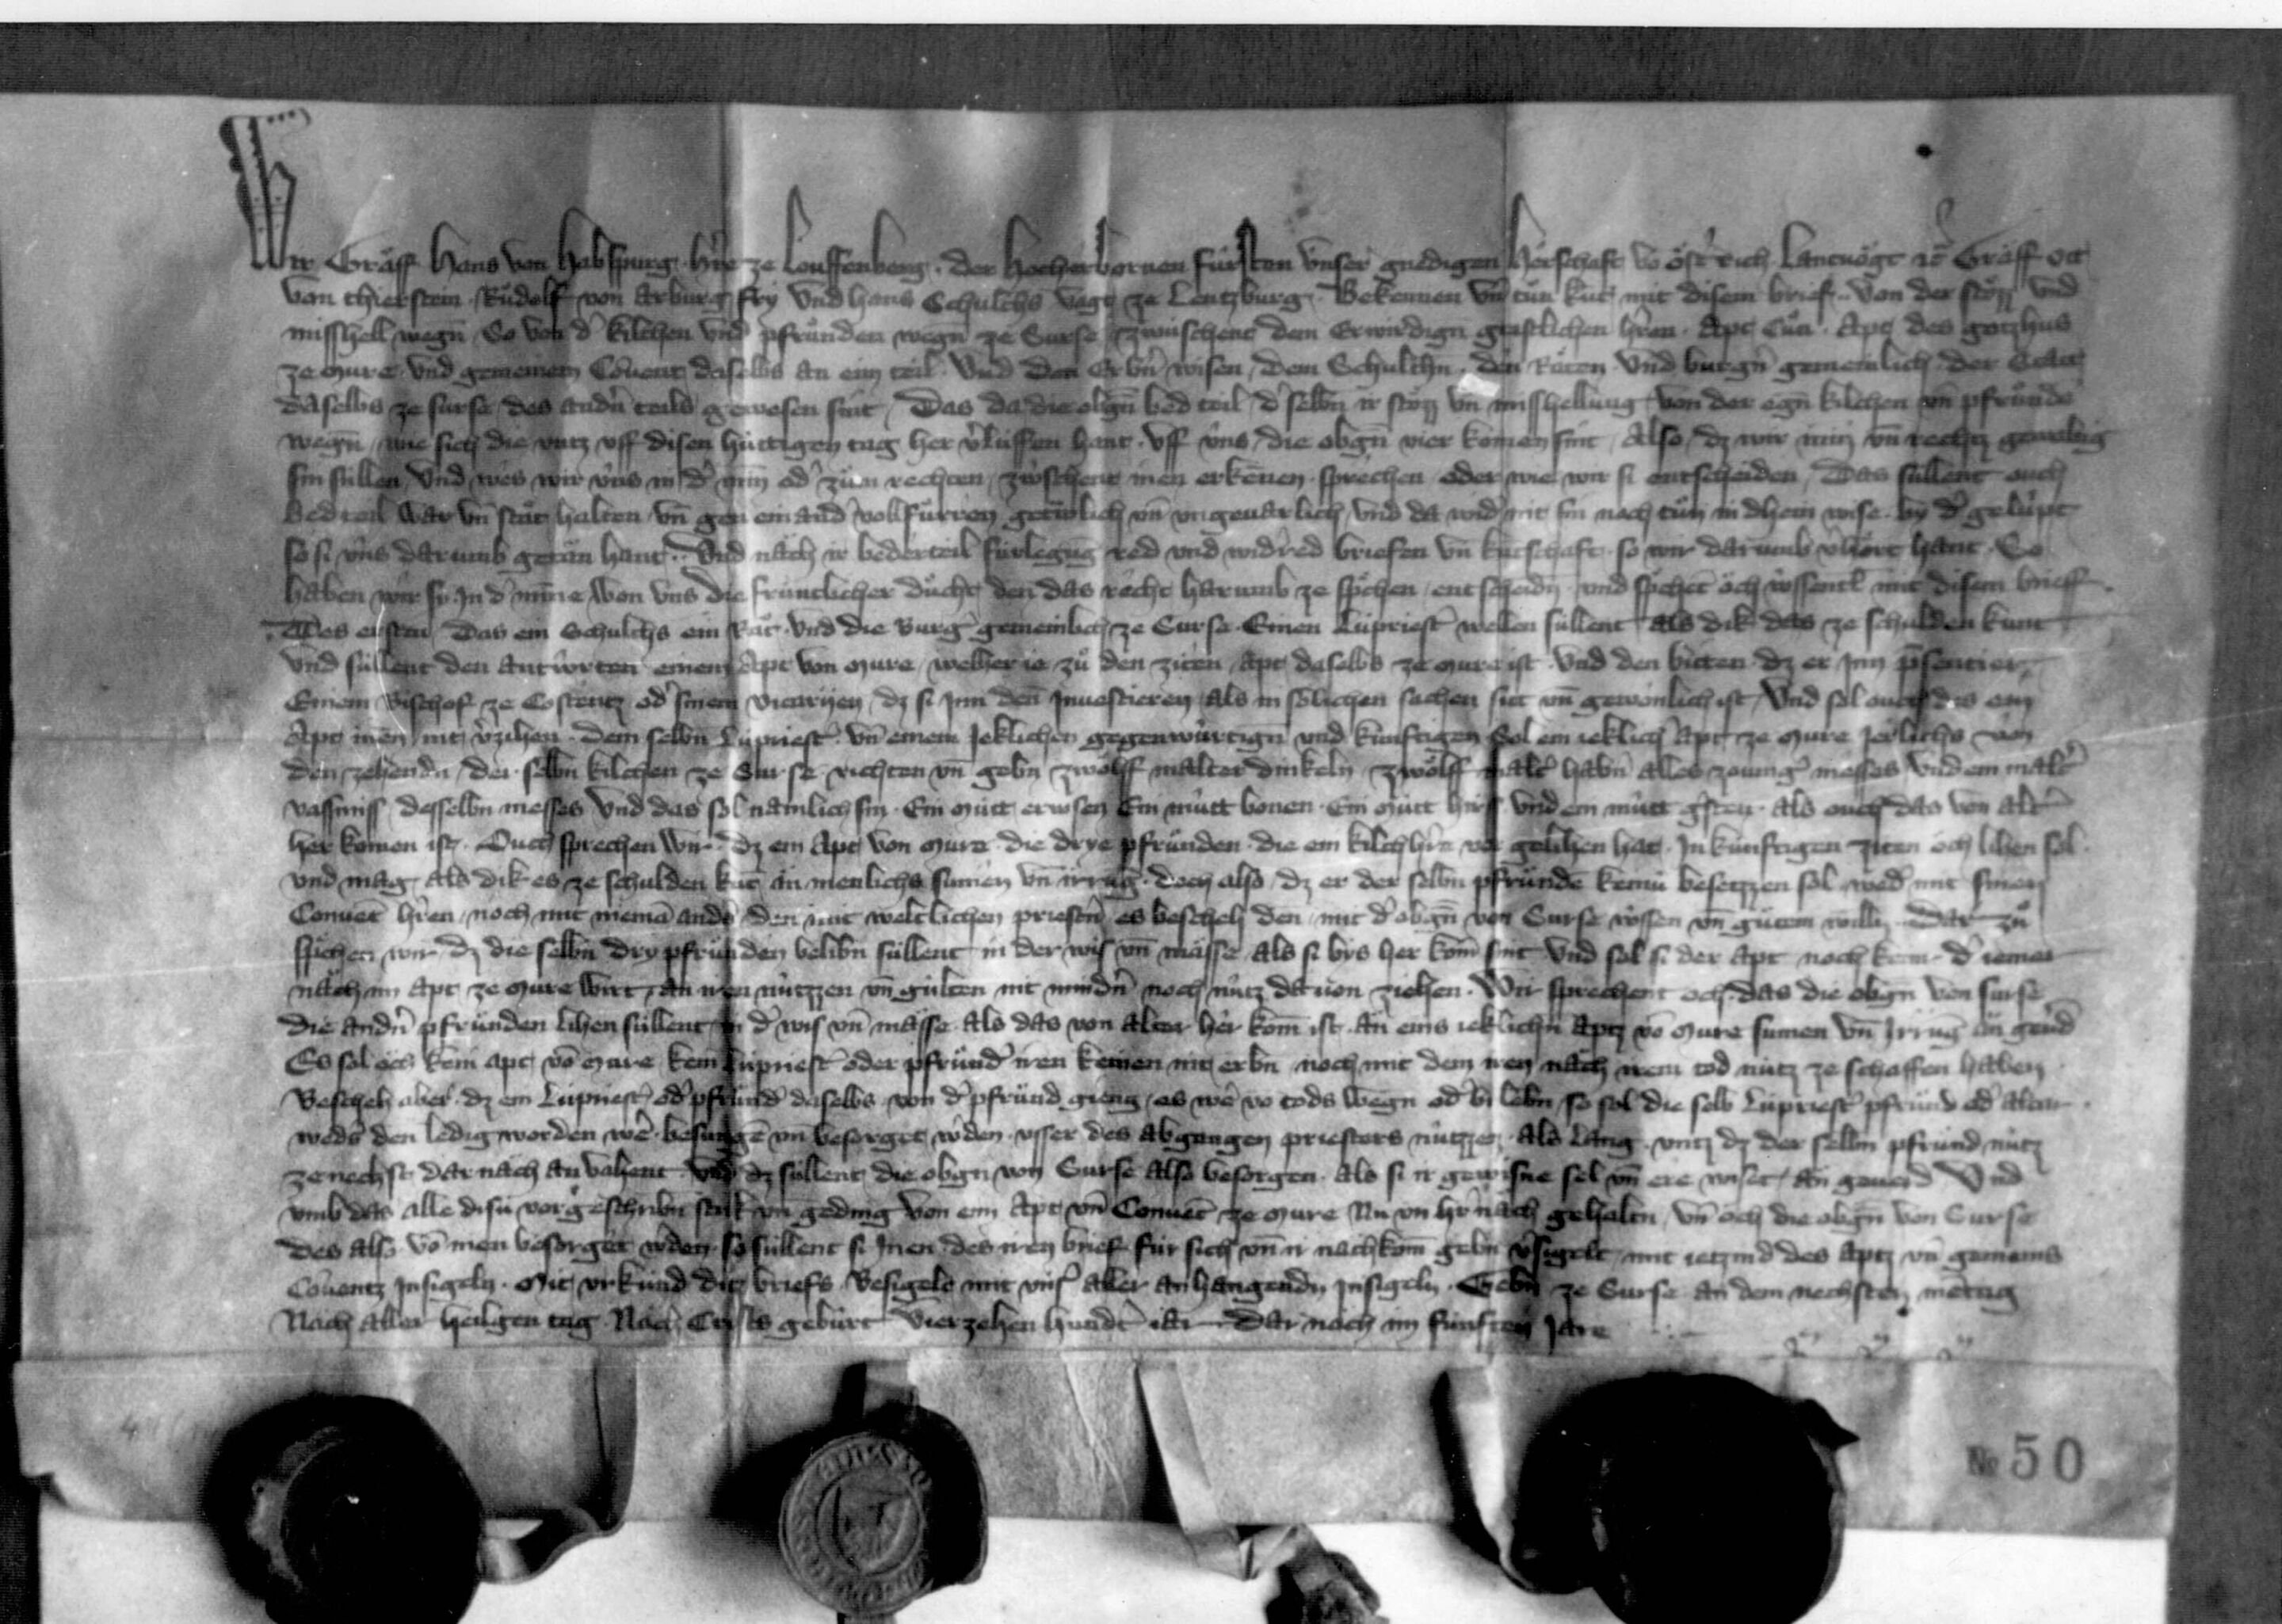 Wir Graff Hans von Habspurg h're ze Louffenberg. der Hocherbornen fürsten vnser gnedigen Herschaft vo öst'rich Lantuögt Graff Ott
von thierstein. Růdolf von Arburg fry vnd hans Schulths vogt ze Lentzburg. Bekennen vn tůn kut mit disem brief. von der stözz vnd
misshell wegn So von d' kilchen vnd pfrůnden wegn ze Surse zwüschent dem Erwirdign geistlichen h'ren. Apt Cůn. Apt des gotzhus
ze Mure. vnd gemeinem Couent daselbs an eim teil. Vnd den Erb'n wisen, dem Schulthn. den Räten vnd burg'n gemeinlich der Statt
daselbs ze surse des and'n teils gewesen sint, Das da die obgn bed teil, d' selbn ir stözz vn misshellung von der egn kilchen vn pfrůnde
wegn, wie sich die vntz vff disen hüttigen tag her v'lüffen hant. vff vns, die obgn vier komen sint, Also, dz wir min vn rechtz geweltig
sin süllen, Vnd wes wir vns in d' min od' zům rechten, zwüschent inen erkennen. sprechen oder wie wir si entscheiden, Das süllent ouch
bed teil war vn stät halten, vn gen einand' vollfürren, getrülich vn vngeuarlich, vnd da wid' nit sin noch tůn in dhein wise. by d' gelüpt
so si vns darumb getän hant.. Vnd näch ir beder teil fürlegung red vnd wid'red briefen vn kutschaft. so wir darumb v'hört hant. So
haben wir sy In d' minne, won vns die früntlicher ducht den das recht harumb ze sp'chen, entscheidn. vnd sp'chet öch wissentl mit disem brieff.
Des ersten, Das ein Schulths ein Rat. vnd die Burg' gemeinlich ze Surse. Einen Lüpriest' wellen süllent als dik das ze schulden kunt
Vnd süllent den antwrten einem Apt von Mure, welher ie zů den ziten, Apt daselbs ze Mure ist. vnd den bitten dz er Inn p'sentier,
Einem Bischof ze Costentz od' sinem vicaryen, dz si Inn den Inuestieren, als in sölichen sachen sitt vn gewonlich ist, Vnd sol ouch des ein
Apt inen nit v'zihen. Dem selbn Lüpriest'. vn einem Ieklichen gegenwürtign vnd künftigen Sol ein ieklich' Apt ze Mure Ierlichs von
den zehendn, der selbn kilchen ze Surse. richten vn gebn zwölff malter dinkeln, zwölff malt' habn alles zouing' messes, Vnd ein malt'
vassmis, desselbn messes Vnd das sol namlich sin. Ein mütt erwsen Ein mütt bonen. Ein mütt hirs. vnd ein mütt g'sten. als ouch das von alt'
her komen ist. Ouch sprechen wir. dz ein Apt von Mure. die drye pfrůnden. die ein kilchh're vor gelihen hat. In künftigen ziten öch lihen sol.
vnd mag, als dik es ze schulden kut än menlichs sumen vn irrung. doch also, dz er der selbn pfrůnde keinü besetzzen sol wed' mit sinen
Conuet h'ren, noch mit niema anders, den mit weltlichen priest'n, es bescheh den, mit d' obgn von Surse wissen vn gůtem willn. Dar zů
sp'chen wir, dz die selbn dry pfrůnden belibn süllent in der wis vn mässe als si bis her kom sint Vnd sol si der Apt noch kein. d' iemer
näch im Apt ze Mure wirt, an iren nützzen vn gülten nit mind'n noch nütz dauon ziehen. Wir sprechent och. das die obgn von surse
die and'n pfrůnden Lihen süllent in d' wis vn mässe als das von alter her kom ist. än eins ieklichn Aptz vo Mure sumen vn Irrung än geu'd
Es sol öch kein Apt vo Mure kein Lüpriest' oder pfrůnd' iren keinen nit erbn noch mit dem iren näch irem tod nütz ze schaffen haben
Bescheh aber. dz ein Lüpriest' od' pfrůnd' daselbs. von d' pfrůnd gieng, es we' vo tods wegn od' bi lebn, so sol die selb Lüpriest' pfrůnd od' altar.
weders den ledig worden we'. besunge vn besorget w'den. vsser des abgangen priesters nützzen. Als lang. vntz dz der selbn pfrůnd nütz
ze nechst dar näch an vahent. Vnd dz süllent die obgn von Surse also besorgen. als si ir gewisne sel vn ere wiset, än geuerd Vnd
vmb das alle disü vorgeschribn stuk vn geding von eim Apt vn Conuet ze Mure Nu vn h'rnäch gehaltn, vn öch die obgn von Surse
des also vo inen besorget w'den. so süllent si Inen des iren brief für sich vn ir nachkom gebn v'sigelt, mit ietzund des Aptz vn gemeins
Couentz Insigeln. Mit vrkund ditz briefs Besigelt mit vns' aller anhangendn Insigeln. Gebn ze Surse an dem nechsten mentag
Nach aller heilgen tag. Nach Crists gebürt Vierzehen hundt' iar dar nach im fünften Jare
No 50